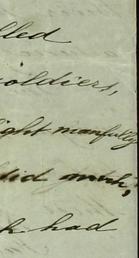 lled
soldiers,
ight manfully
did much;
h had